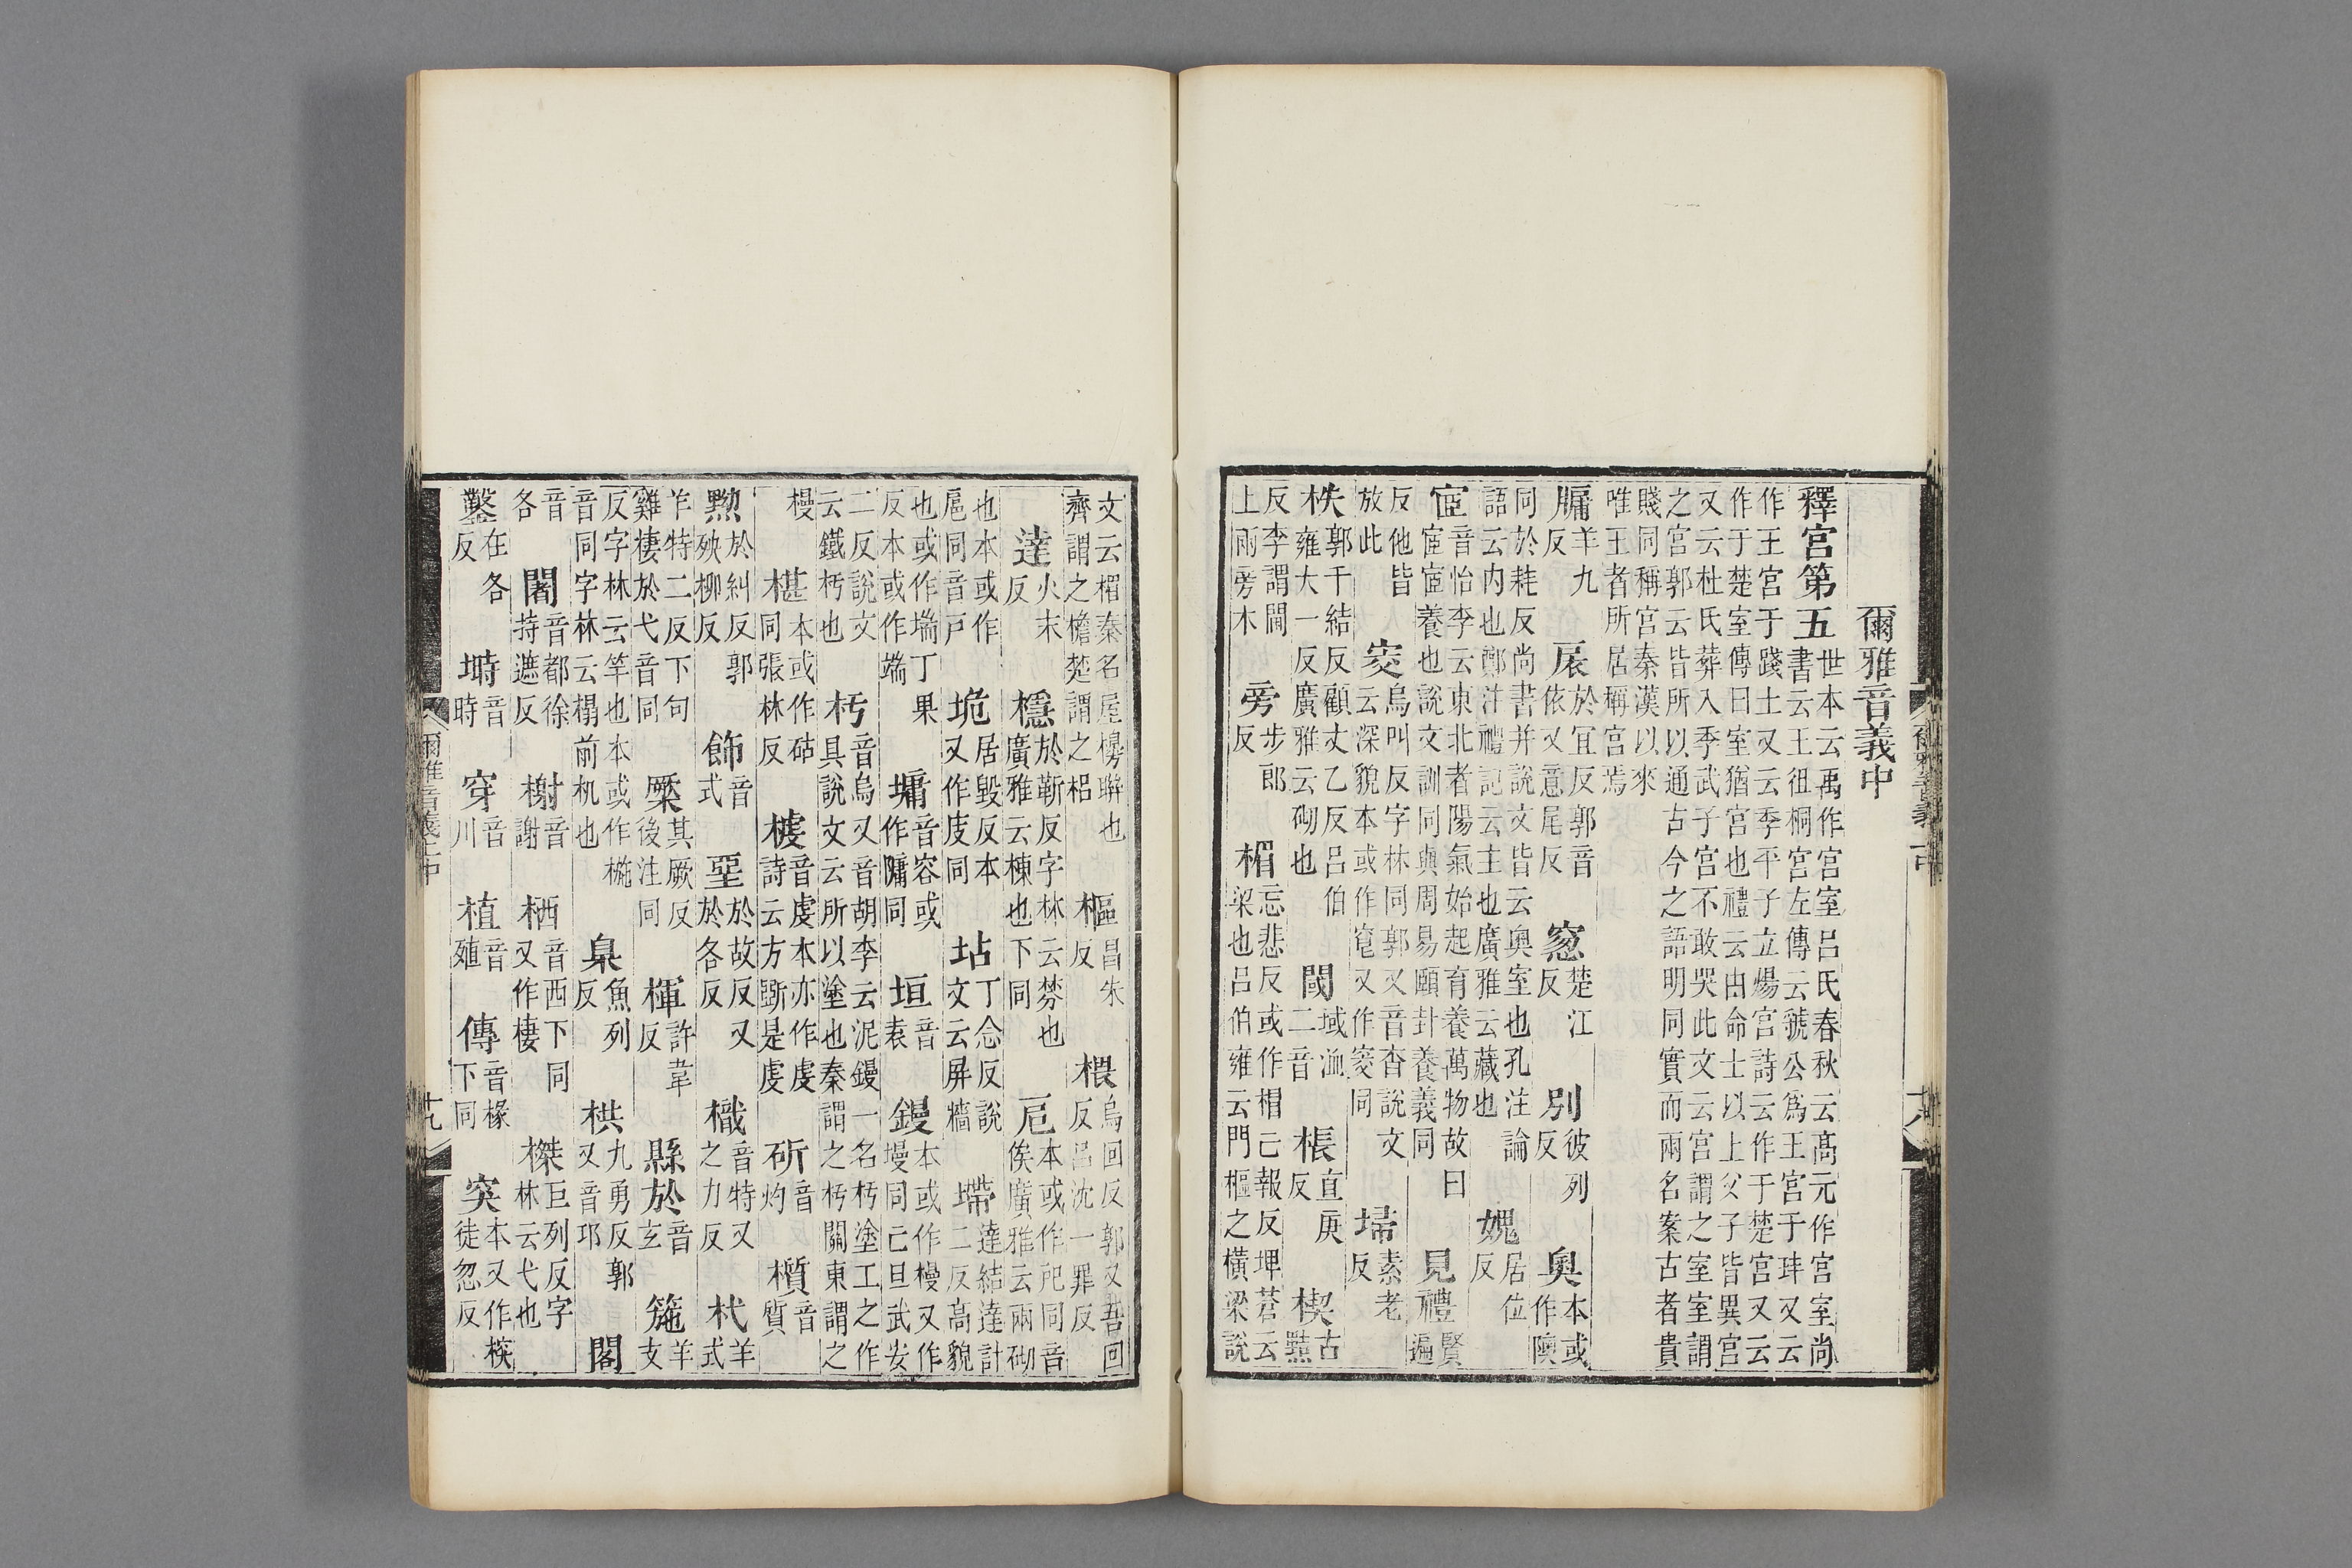 爾雅音義中
釋宫第五世本云禹作宫室吕氏春秋云髙元作宫室尚書云王徂桐宫左傳云虢公爲王宫于玤又云
作王宫于踐土又云季平子立煬宫詩云作于楚宫又云作于楚室傳曰室猶宫也禮云由命士以上父子皆異宫
又云杜氏葬入季武子宫不敢哭此文云宫謂之室室謂之宫郭云皆所以通古今之語明同實而兩名案古者貴
賤同稱宫秦漢以來唯王者所居稱宫焉
牖羊九反 扆於宜反郭音依又意尾反 窓楚江反 別彼列反 奥本或作隩
同於耗反尚書并說文皆云奥室也孔注論語云内也鄭注禮記云主也廣雅云藏也 媿居位反
宧音怡李云東北者陽氣始起育養萬物故曰宧宧養也說文訓同與周易頤卦養義同 見禮賢遍
反他皆放此 窔烏叫反字林同郭又音杳說文云深貌本或作窅又作窔同 埽素老反
柣郭千結反顧丈乙反吕伯雍大一反廣雅云砌也 閾域洫二音 棖直庚反 楔古黠
反李謂闑上兩旁木 旁步郎反 楣忘悲反或作㮘亡報反埤蒼云梁也吕伯雍云門樞之横梁說
十八
文云楣秦名屋櫋聨也齊謂之檐楚謂之梠 樞昌朱反 椳烏回反郭又吾回反吕沈一罪反
達火末反 檼於靳反字林云棼也廣雅云棟也下同 戺本或作同音俟廣雅云兩砌
也本或作扈同音戸 垝居毀反本又作庋同 坫丁念反說文云屏牆 墆達結達計二反高貌
也或作㙐丁果反本或作端 墉音容或作㙲同 垣音袁 鏝本或作槾又作墁同亡旦武安
二反說文云鐵杇也 杇音烏又音胡李云泥鏝一名杇塗工之作具說文云所以塗也秦謂之杇關東謂之
槾 椹本或作砧同張林反 榩音虔本亦作虔詩云方斲是虔 斫音灼 櫍音質
黝於糾反郭殃柳反 飾音式 堊於故反又於各反 樴音特又之力反 杙羊式
羊特二反下句雞棲於弋音同 橜其厥反後注同 楎許韋反 縣於音玄 箷羊支
反字林云竿也本或作椸音同字林云榻前机也 臬魚列反 栱九勇反郭又音邛 閣
音各 闍音都徐持遮反 榭音謝 栖音西下同又作棲 榤巨列反字林云弋也
鑿在各反 塒音時 穿音川 植音殖 傳音椽下同 突本又作㮏徒忽反
十九